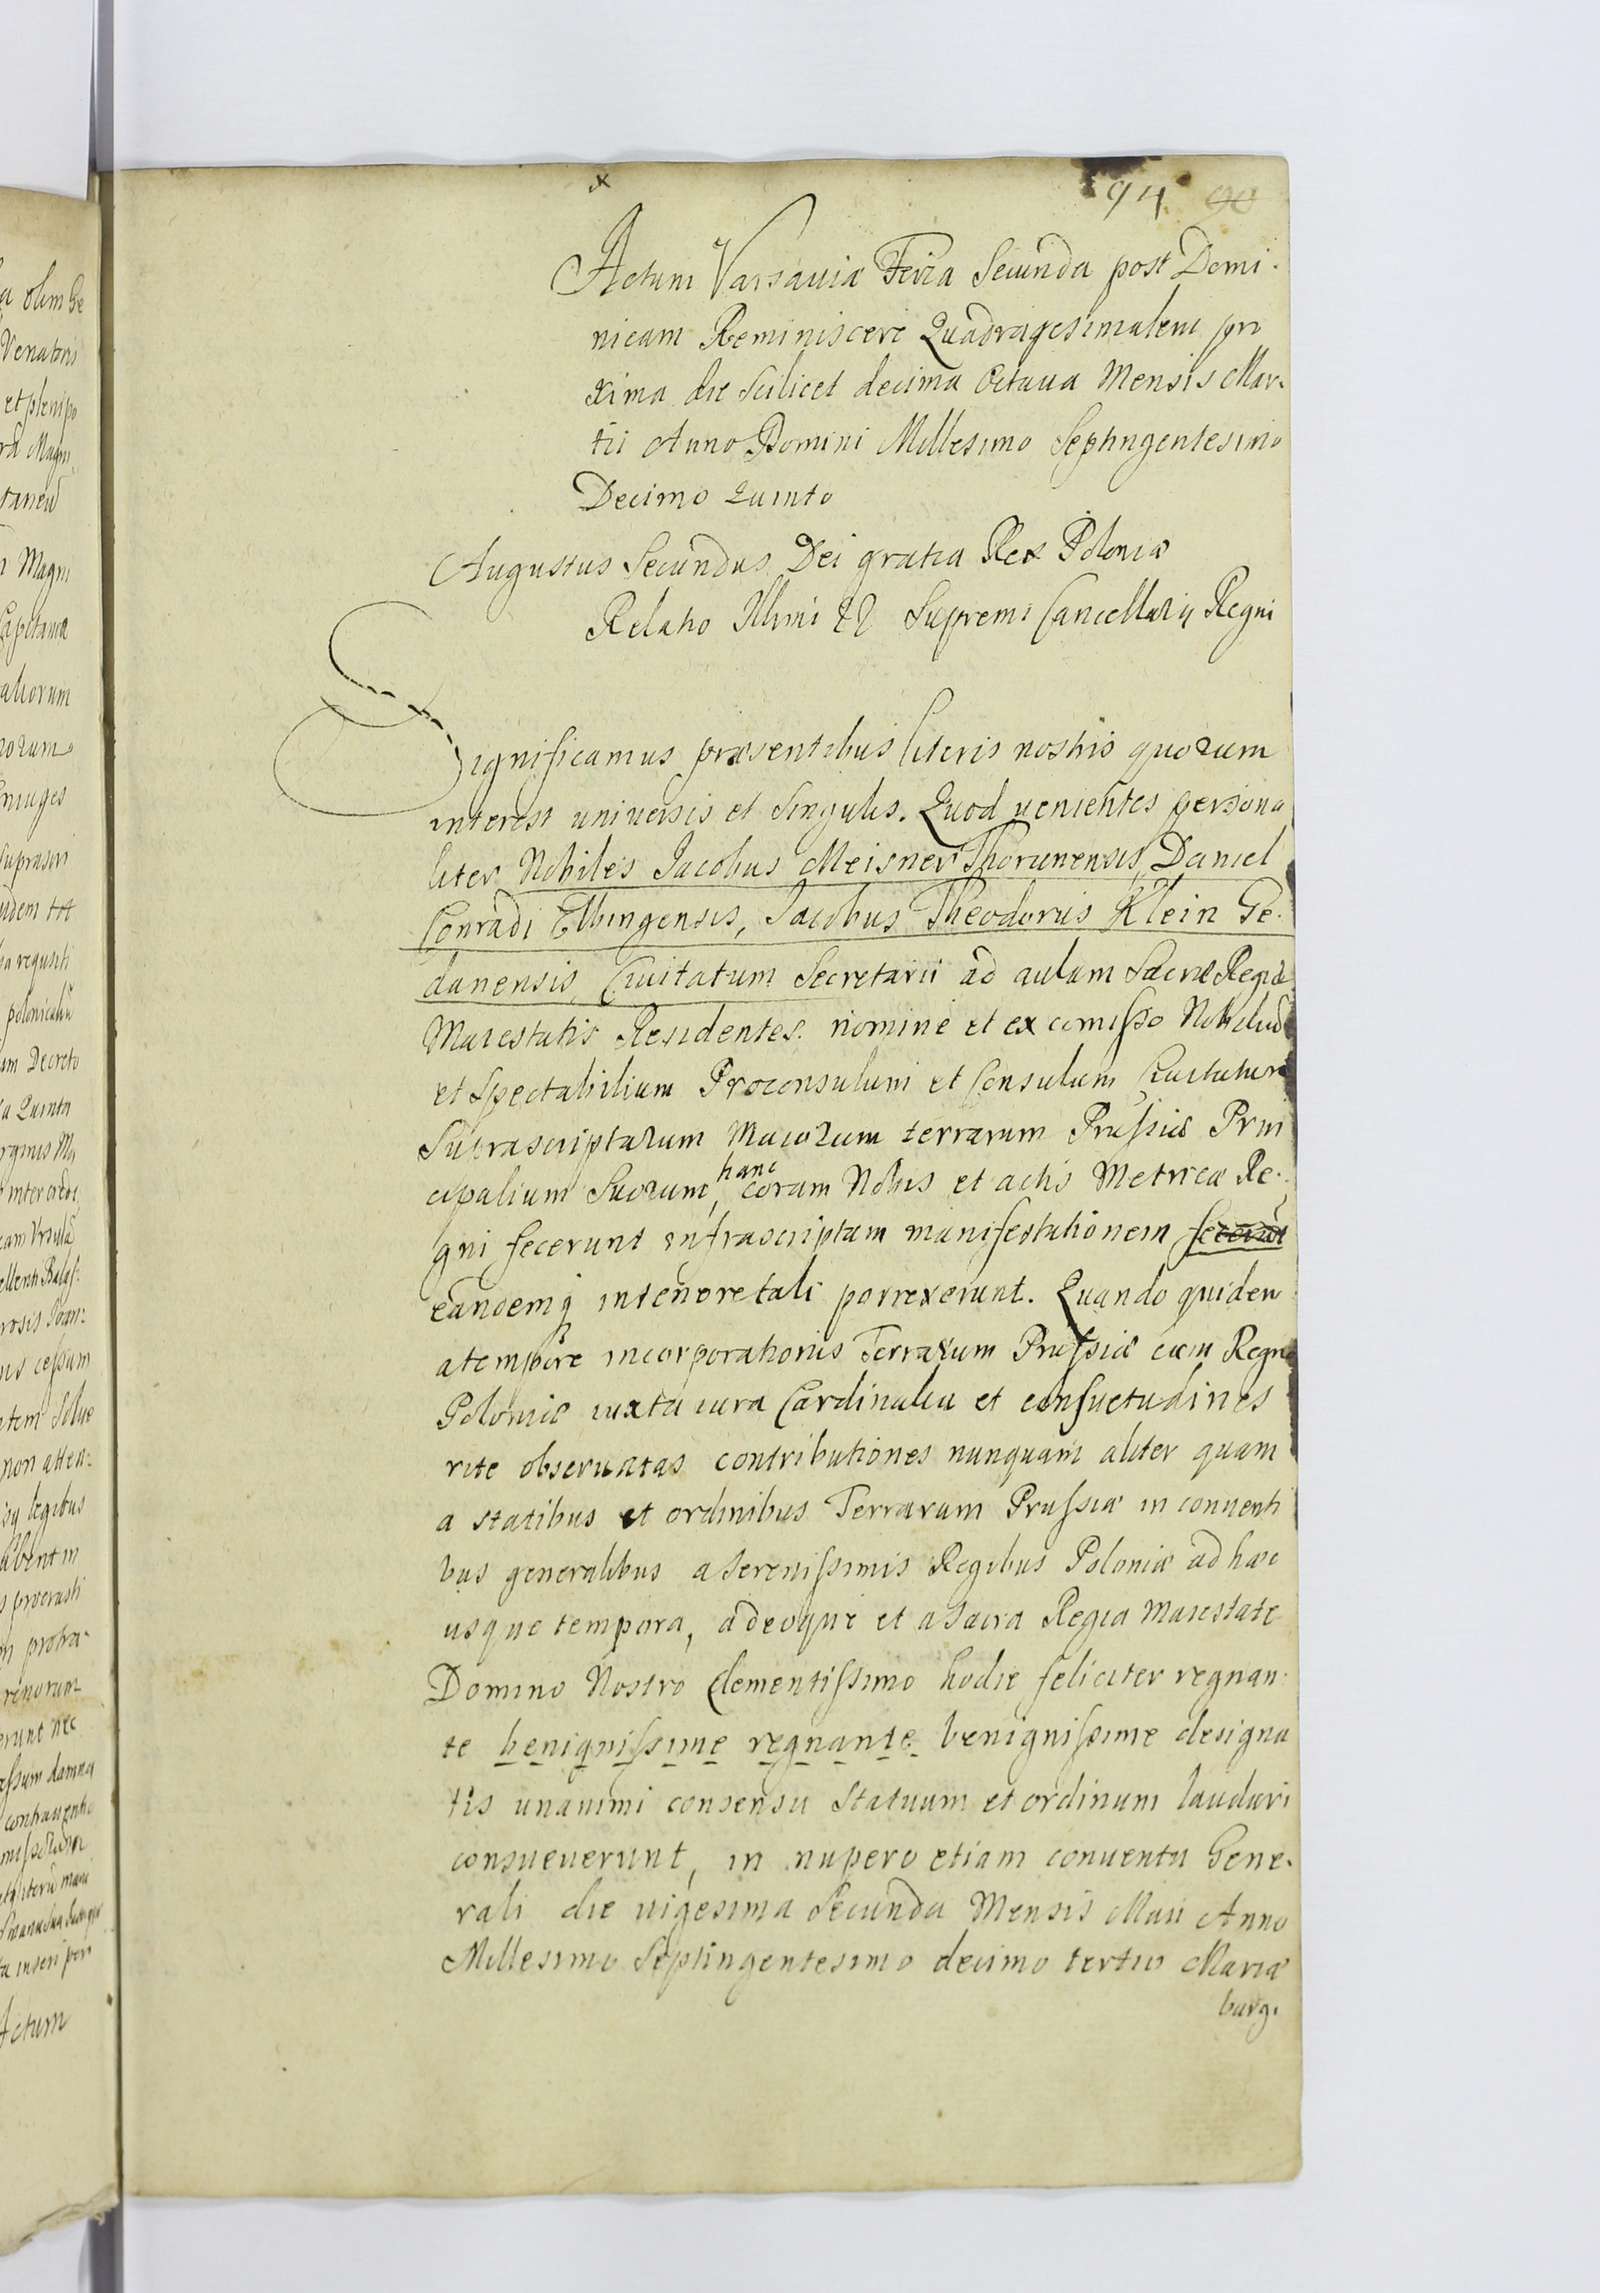 x
94 90
Actum Varsaviæ Feria Secunda post Domi-
nicam Reminiscere Quadragesimalem pro
xima die Scilicet decima Octaua Mensis Mar-
tii Anno Domini Millesimo Septingentesimo
Decimo Quinto
Augustus Secundus Dei gratia Rex Poloniæ
Relatio Illmi Supremi Cancellarij Regni
Significamus præsentibus literis nostris quorum
interest universis et Singulis. Quod uenientes persona
liter Nobiles Jacobus Meisner Thorunensis, Daniel
Conradi Elbingensis, Jacobus Theodorus Klein Ge-
danensis, Ciuitatum Secretarii ad aulam Sacræ Regiæ
Maiestatis Residentes. nomine et ex comisso Nobiliũ
et Spectabilium Proconsulum et Consulum Ciuitatum
Suprascriptarum Maiorum terrarum Prussiæ Prin
cipalium Suorum, hanc coram Nobis et actis Metricæ Re-
gni fecerunt infrascriptam manifestationem fecerunt
eandemq intenore tali porrexerunt. Quando quidem
a tempore incorporationis Terrarum Prussiæ cum Regno
Poloniæ iuxta iura Cardinalia et consuetudines
rite obseruatas contributiones nunquam aliter quam
a statibus et ordinibus Terrarum Prussiæ in conuenti
bus generalibus a Serenissimis Regibus Poloniæ ad hæc
usque tempora, adeoque et a Sacra Regia Maiestate
Domino Nostro Clementissimo hodie feliciter regnan-
te benignissime regnante benignissime designa
tis unanimi consensu Statuum et ordinum laudari
consueuerunt, in nupero etiam conuentu Gene-
rali die uigesima Secunda Mensis Maii Anno
Millesimo Septingentesimo decimo tertio Mariæ
burg.
a olim Ge
Venatoris
et plenipo
Magni
Capitanæ
aliorum
norum
Suprascri
idem tot
a requisiti
um Decreto
a Quinta
cessum
non atten-
legibus
erunt nec
Actum